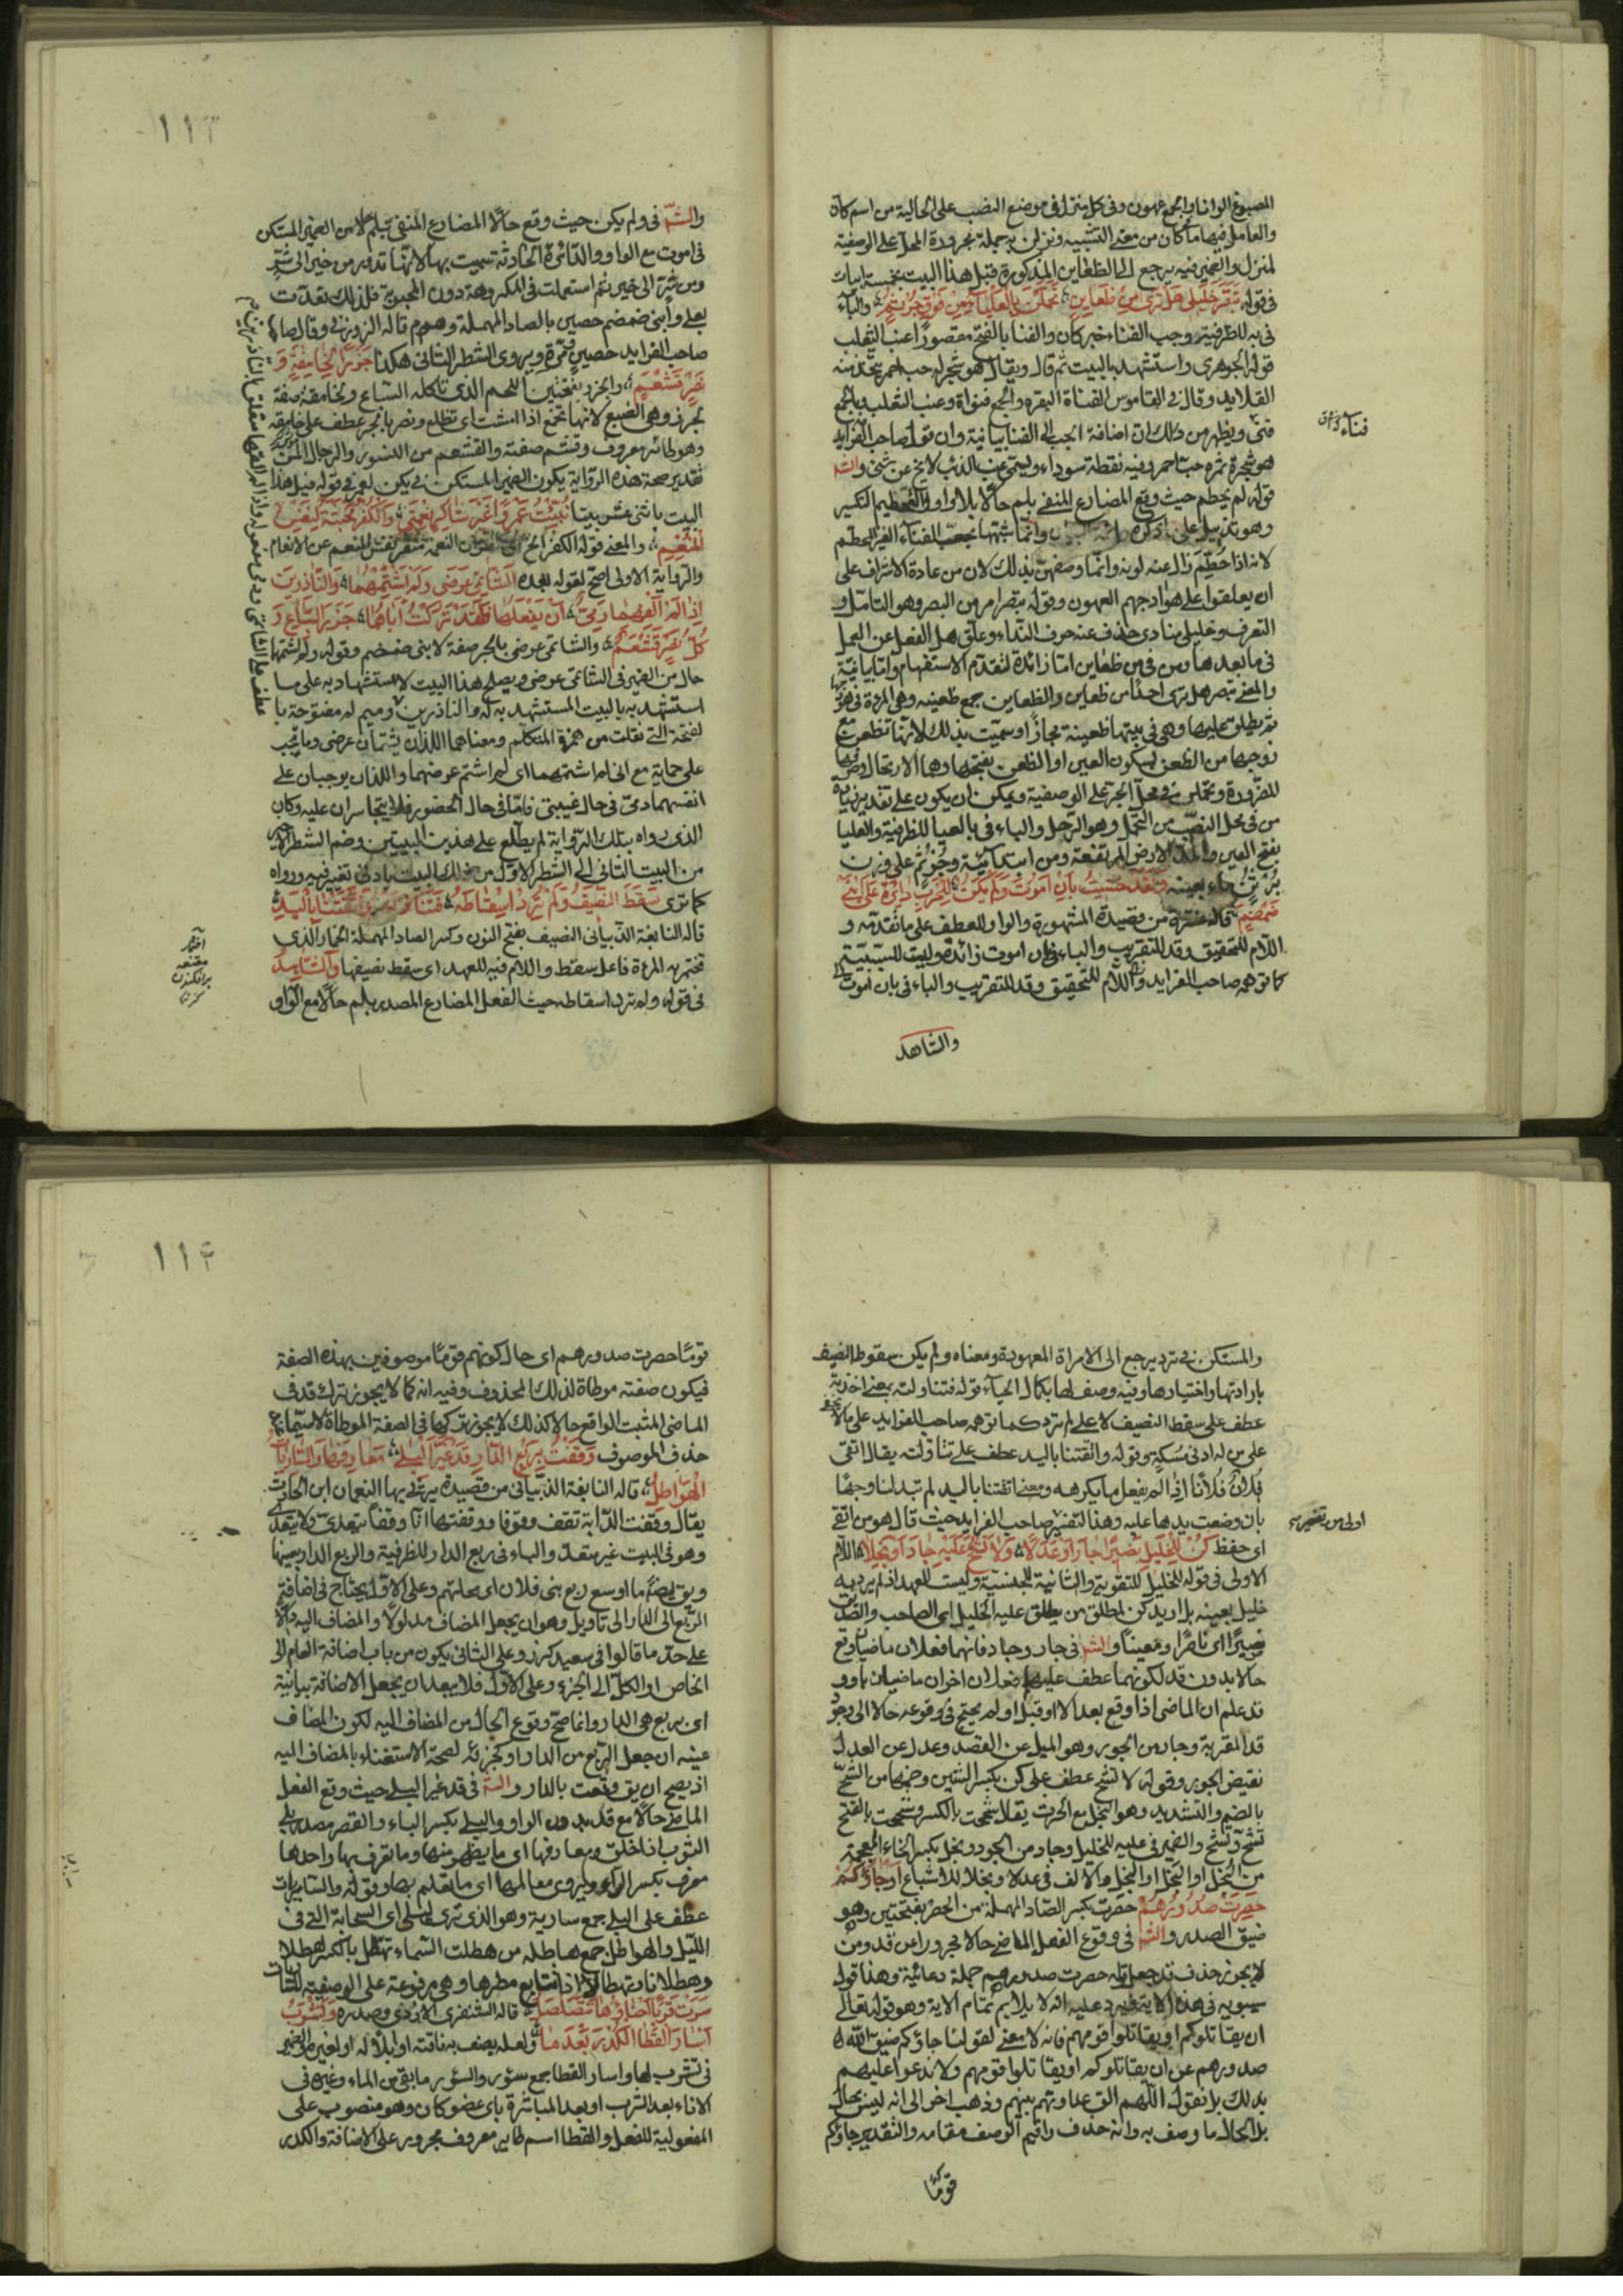 المصبوغ الوانا والجمع عهون وفى كل منزل فى موضع النصب على الحالية من اسم كان
والعامل فيها ما فى كان من معنى التشبيه ونزلن به جملة مجرورة المحل على الوصفية
لمنزل والضمير فيه يرجع الى الظعاين المذكورة قبل هذا البيت بخمسة ابيات
فى قوله تبصر خليلى هل ترى من ظعاين تحملن بالعلياء من فوق جرثم والباء
فى به للظرفية وحب الفناء خبر كان والفنا بالفتح مقصورا عنب الثعلب
قوله الجوهرى واستشهد بالبيت ثم قال ويقال هو شجر له حب احمر يتخذ منه
القلايد وقال فى القاموس الفناة البقرة والجمع فنواة وعنب الثعلب والجمع
فنى ويظهر من ذلك ان اضافة الحب الى الفنا بيانية وان قول صاحب الفرايد
هو شجرة ثمره حب احمر وفيه نقطة سوداء ويسمى عنب الذئب لا يخ عن شئ والشا
قوله لم يحطم حيث وقع المضارع المنفى بلم حالا بلا واو والتحطيم التكسير
وهو تذييل على وانما شبهها بحب الفناء الغير المحطم
لانه اذا حطم زال عنه لونه وانما وصفهن بذلك لان من عادة الاشراف على
ان يعلقوا على هوادجهم العهون وقوله تبصر امر من البصر وهو التامل و
التعرف وخليلى منادى حذف عنه حرف النداء وعلق هل الفعل عن العمل
فى ما بعدها ومن فى من ظعاين اما زائدة لتقدم الاستفهام واما بيانية
والمعنى تبصر هل ترى احدا من ظعاين والظعاين جمع ظعينه وهى المرءة فى هود
ثم يطلق عليها وهى فى بيتها ظعينة مجازا وسميت بذلك لانها تظعن مع
زوجها من الظعن بسكون العين او الظعن بفتحها وهما الارتحال وصرفها
للضرورة وتحملن فى محل الجر على الوصفية ويمكن ان يكون على تقدير زيادة
من فى محل النصب من التحمل وهو الترحل والباء فى بالعليا للظرفية والعليا
بفتح العين والمد الارض المرتفعة ومن ابتدائية وجرثم على وزن
برثن ماء بعينه ولقد خشيت بان اموت ولم يكن للحرب دائرة على ابنى
ضمضم قاله عنترة من قصيدة المشهورة والواو للعطف على ما تقدمه و
اللام للتحقيق وقد للتقريب والباء فى بان اموت زائدة وليت للسببية
كما توهمه صاحب الفرايد واللام للتحقيق وقد للتقريب والباء فى بان اموت
والشاهد
فناء
والشا فى ولم يكن حيث وقع حالا المضارع المنفى بلم من الضمير المستكن
فى اموت مع الواو والدائرة الحادثة سميت بها لانها تدور من خير الى شر
ومن شر الى خير ثم استعملت فى المكروهة دون المحبوبة فلذلك تعدت
بعلى وابنى ضمضم حصين بالصاد المهملة وهرم قاله الزوزنى وقال
صاحب الفرايد حصين ومرة ويروى الشطر الثانى هكذا جزرا لخامعة و
نسر قشعم والجزر بفتحتين اللحم الذى تاكله السباع والخامعة صفة
لجزر وهى الضبع لانها تخمع اذا امشت اى تظلع ونصر بالجر عطف على خامعة
وهو طائر معروف وقشعم صفته والقشعم من النسور والرجال المسن
تقدير صحة هذه الرواية يكون الضمير المستكن فى يكن لعمرو فى قوله قبل هذا
البيت باثنى عشر بيتا نبئت عمروا غير شاكر نعمتى والكفر مخبثة لنفس
المنعم والمعنى قوله الكفر الخ النعمة تنفر نفس المنعم عن الانعام
والرواية الاولى اصح لقوله بعده الشاتمى عرضى ولم اشتمهما والناذرين
اذا لم القهما دمى ان يفعلا فلقد تركت اباهما جزر السباع و
كل نسر قشعم والشاتمى عرضى بالجر صفة لابنى ضمضم وقوله ولم اشتمها
حال من الضمير فى الشاتمى عرضى ويصلح هذا البيت لاستشهاد به على ما
استشهد به بالبيت المستشهد به له والناذرين وميم لم مفتوحة با
لفتحة التى نقلت من همزة المتكلم ومعناهما اللذان يشتمان عرضى وما يجب
على حماية مع انى لم اشتمهما اى لم اشتم عرضهما واللذان يوجبان على
انفسهما دمى فى حال غيبتى فاما فى حال الحضور فلا يتجاسران عليه وكان
الذى رواه بتلك الرواية لم يطلع على هذين البيتين وضم الشطر الاخير
من البيت الثانى الى الشطر الاول من ذلك البيت بادنى تغيير فيه ورواه
كما ترى سقط النصيف ولم ترد اسقاطه فتناولته واتقتنا باليد
قاله النابغة الذبيانى النصيف بفتح النون وكسر الصاد المهملة الخمار الذى
تختمر به المرءة فاعل سقط واللام فيه للعهد اى سقط نصيفها والشاهد
فى قوله ولم ترد اسقاطه حيث الفعل المضارع المصدر بلم حالا مع الواو
والمستكن فى ترد يرجع الى الامراة المعهودة ومعناه ولم يكن سقوط النصيف
بارادتها واختيارها وفيه وصف لها بكمال الحياء قوله فتناولته بمعنى اخذته
عطف على سقط النصيف لا على لم ترد كما توهمه صاحب الفوايد على ما لا يخفى
على من له ادنى مسكة وقوله واتقتنا باليد عطف على تناولته يقال اتقى
فلان فلانا اذا لم يفعل ما يكرهه ومعنى اتقتنا باليد لم تبد لنا وجهها
بان وضعت يدها عليه وهذا التفسير صاحب الفرايد حيث قال هو من اتقى
اى حفظ كن للخليل نصيرا جار او عدلا ولا تشح عليه جاد او بخلا اللام
الاولى فى قوله للخليل للتقوية والثانية للجنسية وليست للعهد اذ لم يرد به
خليل بعينه بل اريد كن لمطلق من يطلق عليه الخليل اى الصاحب والصديق
نصيرا اى ناصرا ومعينا والشا فى جار وجاد فانهما فعلان ماضيان وقع
حالا بدون قد لكونهما عطف عليهما فعلان اخران ماضيان باو و
قد علم ان الماضى اذا وقع بعد الا او قبل او لم يحتج فى وقوعه حالا الى وجود
قد المقربة وجار من الجور وهو الميل عن القصد وعدل من العدل
نقيض الجور وقوله لا تشح عطف على كن بكسر الشين وضمها من الشح
بالضم والتشديد وهو البخل مع الحرص يقال شححت بالكسر وشححت بالفتح
تشح وتشح والضمير فى عليه للخليل وجاد من الجود وبخل بكسر الخاء المعجمة
من البخل او البخل او البخل والالف فى عدلا وبخلا للاشباع او جاؤكم
حصرت صدورهم حصرت بكسر الصاد المهملة من الحصر بفتحتين وهو
ضيق الصدر والشا فى وقوع الفعل الماضى حالا مجرورا عن قد ومن
لا يجوز حذف قد جعل قوله حصرت صدورهم جملة دعائية وهذا قول
سيبويه فى هذه الاية ويرد عليه انه لا يلايم تمام الاية وهو قوله تعالى
ان يقاتلوكم او يقاتلوا قومهم فانه لا معنى لقولنا جاؤكم ضيق الله
صدورهم عن ان يقاتلوكم او يقاتلوا قومهم ولا ندعوا عليهم
بذلك بل نقول اللهم الق عداوتهم بينهم وذهب اخر الى انه ليس بحال
بل الحال ما وصف به وانه حذف واقيم الوصف مقامه والتقدير جاؤكم
قوما
قوما حصرت صدورهم اى حال كونهم قوما موصوفين بهذه الصفة
فيكون صفته موطاة لذلك المحذوف وفيه انه كما لا يجوز ترك قد فى
الماضى المثبت الواقع حالا كذلك لا يجوز تركها فى الصفة الموطاة لا سيما مع
حذف الموصوف وقفت بربع الدار قد غير البلى معارفها والساريات
الهواطل قاله النابغة الذبيانى من قصيدة يرثى بها النعمان ابن الحارث
يقال وقفت الدابة تقف وقوفا ووقفتها انا وقفا يتعدى ولا يتعدى
وهو فى البيت غير متعد والباء فى بربع الدار للظرفية والربع الدار بعينها
ويق ايضا ما اوسع ربع بنى فلان اى محلتهم وعلى الاول يحتاج فى اضافة
الربع الى الدار الى تاويل وهو ان يجعل المضاف مدلولا والمضاف اليه دالا
على حد ما قالوا فى سعيد كرز وعلى الثانى يكون من باب اضافة العام الى
الخاص او الكل الى الجزء وعلى الاول فلا يبعد ان يجعل الاضافة بيانية
اى بربع هى الدار وانما صح وقوع الحال من المضاف اليه لكون المضاف
عينه ان جعل الربع من الدار او كجزئه لصحة الاستغناء بالمضاف اليه
اذ يصح ان يق وقفت بالدار والشا فى قد غير البلى حيث وقع الفعل
الماضى حالا مع قد بدون الواو والبلى بكسر الباء والقصر مصدر بلى
الثوب اذا خلق ومعارفها اى ما يظهر منها وما تعرف بها واحدها
معرف بكسر الراء ويروى معالمها اى ما تعلم بها وقوله والساريات
عطف على البلى جمع سارية وهو الذى ترى ليلى اى السحابة التى فى
الليل والهواطل جمع هاطله من هطلت السماء تهطل بالكسر هطلا
وهطلانا وتهطالا اذا تتابع مطرها وهى مرفوعة على الوصفية للساريات
سرت قربا احناؤها تتصلصل قاله الشنفرى الازدى وصدره وتشرب
اسار القطا الكدر بعدما ولعله يصف به ناقته او ابلا له او لغيره والضمير
فى تشرب لها واسار القطا جمع سؤر والسؤر ما بقى من الماء وغيره فى
الاناء بعد الشرب او بعد المباشرة باى عضو كان وهو منصوب على
المفعولية للفعل والقطا اسم طاير معروف مجرور على الاضافة والكدر